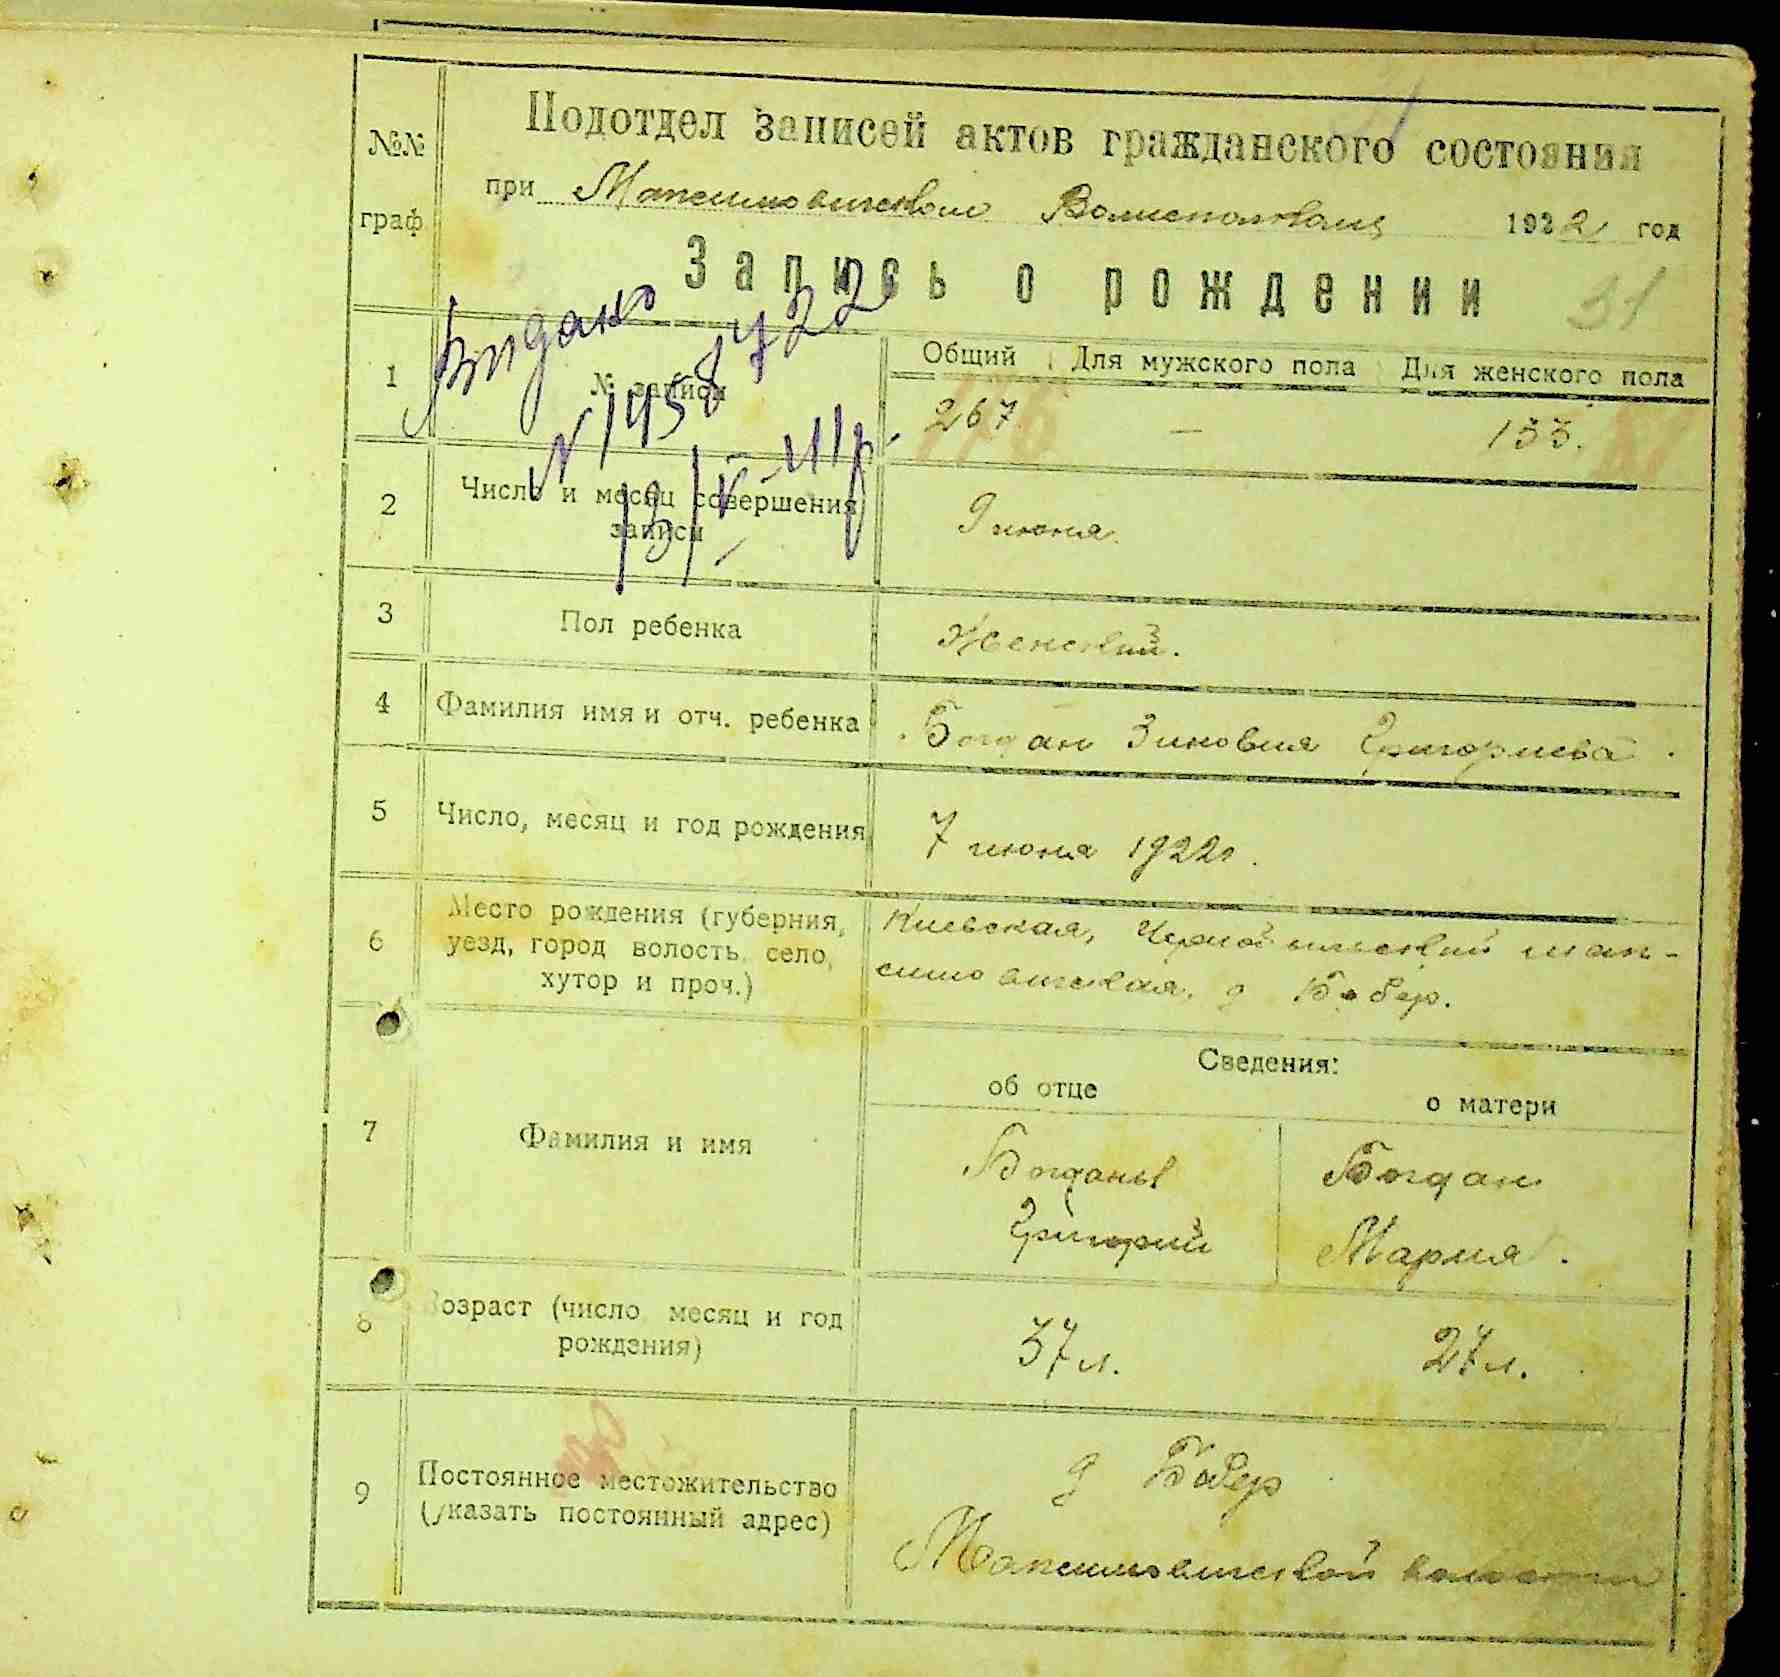 №№
граф
Подотдел записей актов гражданского состояния
при Максимовическом Волисполкоме 1922 год
Запись о рождении
31
Видано
N 1458922
13/V-41р.
1
№ записи
Общий Для мужского пола Для женского пола
267. — 133.
2
Число и месяц совершения
записи
9 июня.
3
Пол ребенка
Женский.
4
Фамилия имя и отч. ребенка
Богдан Зиновия Григориева.
5
Число, месяц и год рождения
7 июня 1922г.
6
Место рождения (губерния,
уезд, город волость, село,
хутор и проч.)
Киевская, Чернобыльский мак-
симовическая, д Бобер.
Сведения:
об отце
о матери
7
Фамилия и имя
Богдан
Григорий
Богдан
Мария.
8
Возраст (число месяц и год
рождения)
37 л.
27 л.
9
Постоянное местожительство
(указать постоянный адрес)
д Бобер
Максимовической волости.